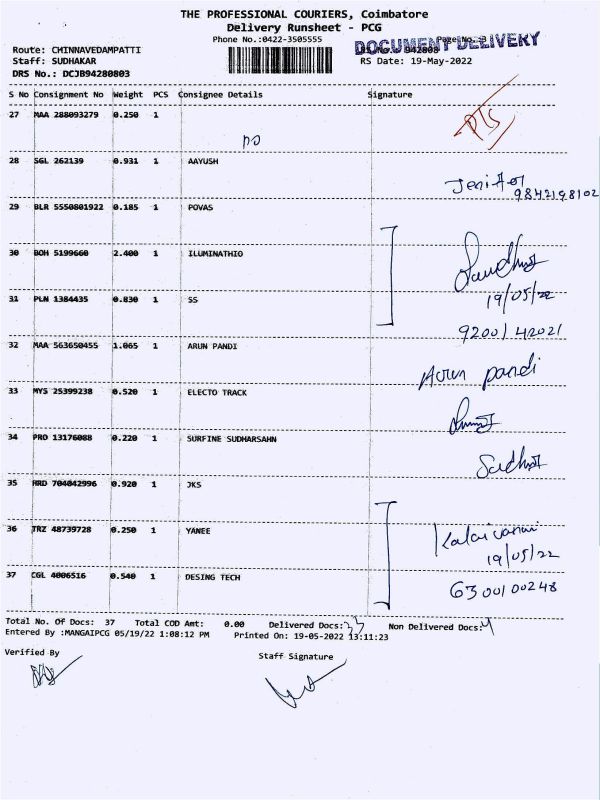 THE PROFESSIONAL COURIERS, Coimbatore
Delivery Runsheet - PCG
Phone No.:0422-3505555 Page No.:3
DOCUMENT DELIVERY
Route: CHINNAVEDAMPATTI 942808
Staff: SUDHAKAR RS Date: 19-May-2022
DRS No.: DCJB94280803
S No Consignment No Weight PCS Consignee Details Signature
27 MAA 288093279 0.250 1
28 SGL 262139 0.931 1 AAYUSH
9842198102
29 BLR 5550801922 0.185 1 POVAS
30 BOH 5199660 2.400 1 ILUMINATHIO
19/05/22
31 PLN 1384435 0.830 1 SS
9200142021
32 MAA 563650455 1.065 1 ARUN PANDI
Arun pandi
33 MYS 25399238 0.520 1 ELECTO TRACK
34 PRD 13176088 0.220 1 SURFINE SUDHARSAHN
35 HRD 704042996 0.920 1 JKS
36 TRZ 48739728 0.250 1 YANEE
Kalaivanai
19/05/22
37 CGL 4006516 0.540 1 DESING TECH
6300100248
Total No. Of Docs: 37 Total COD Amt: 0.00 Delivered Docs:33 Non Delivered Docs:4
Entered By :MANGAIPCG 05/19/22 1:08:12 PM Printed On: 19-05-2022 13:11:23
Verified By
Staff Signature